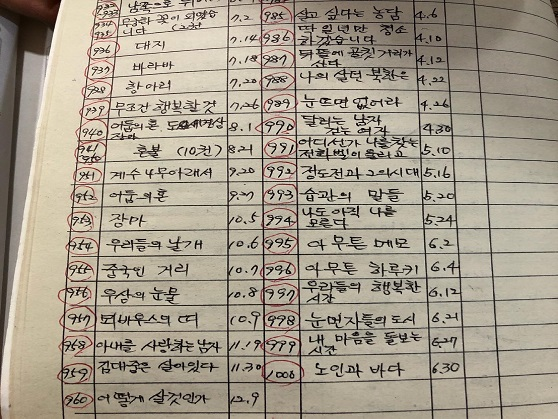 933 남쪽으로 튀어
934 무궁화 꽃이 피었습
935 니다 (2권) 7.2
936 대지 7.14
937 바라바 7.18
938 항아리 7.20
939 무조건 행복할 것 7.26
940 어둠의 혼 8.1
941 혼불 (10권) 8.21
950
951 계수나무아래서 9.20
952 어둠의 혼 9.27
953 장마 10.5
954 우리들의 날개 10.6
955 중국인 거리 10.7
956 우상의 눈물 10.8
957 뫼비우스의 띠 10.9
958 아내를 사랑하는 남자 11.19
959 김대중은 살아있다 11.30
960 어떻게 살것인가 12.9
985 살고 싶다는 농담 4.6
986 딱 일년만 청소
하겠습니다 4.10
987 뒤뜰에 골칫거리가
산다 4.12
988 나의 살던 북한은 4.22
989 눈뜨면 없어라 4.26
990 달리는 남자
걷는 여자 4.30
991 어디선가 나를 찾는
전화벨이 울리고 5.10
992 정도전과 그의시대 5.16
993 습관의 말들 5.20
994 나도 아직 나를
모른다 5.24
995 아무튼 메모 6.2
996 아무튼 하루키 6.4
997 우리들의 행복한
시간 6.12
998 눈먼자들의 도시 6.21
999 내 마음을 돌보는
시간 6.27
1000 노인과 바다 6.30